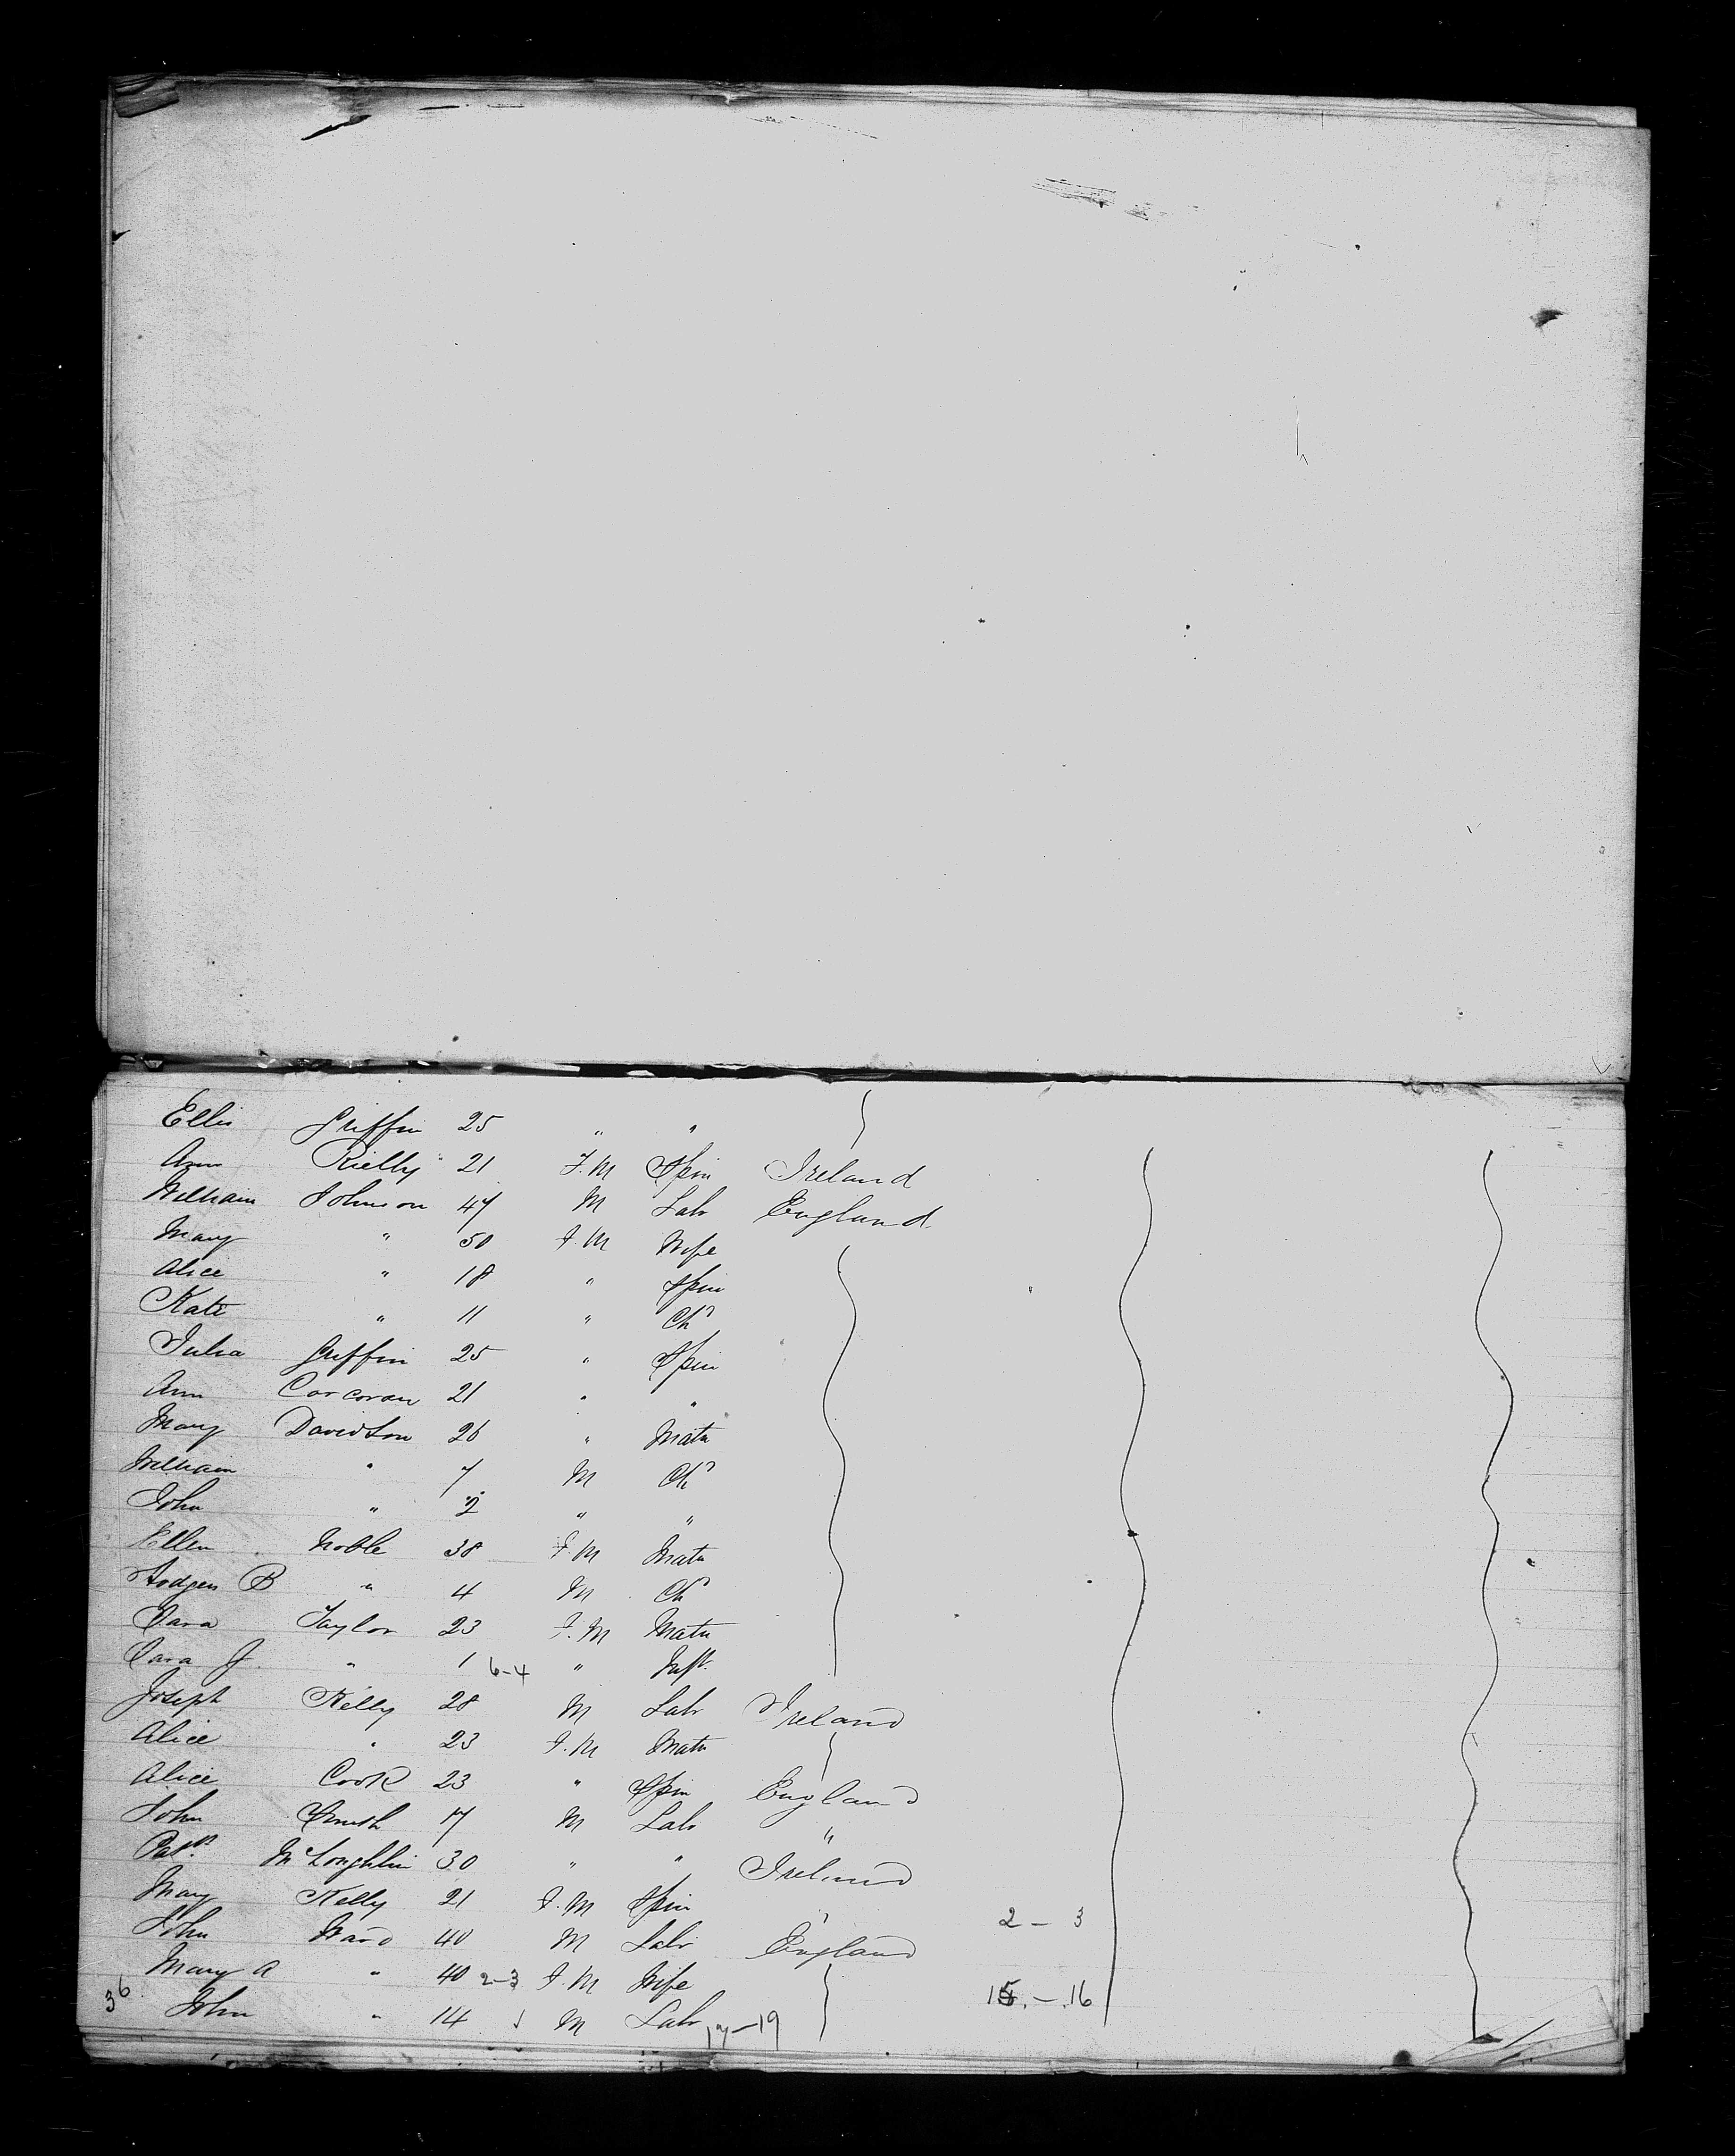 Ellis Griffin 25 " "
Ann Rielly 21 F.M Spin Ireland
William Johnson 47 M Labr England
Mary " 50 F.M Wife
Alice " 18 " Spin
Kate " 11 " Chd
Julia Griffin 25 " Spin
Ann Corcoran 21 " "
Mary Davidson 26 " Matn
William " 7 M Chd
John " 2 " "
Ellen Noble 38 F.M Matn
B " 4 M Chd
Sara Taylor 23 F.M Matn
Sara J. " 1 6-4 " Inft.
Joseph Kelly 28 M Labr Ireland
Alice " 23 F.M Matn
Alice Cook 23 " Spin England
John Smith 17 M Labr "
Patk. McLoughlin 30 " " Ireland
Mary Kelly 21 F.M Spin " 2 - 3
John Ward 40 M Labr England
Mary A " 40 2-3 F.M Wife 15. - 16
36 John " 14 M Labr 17-19